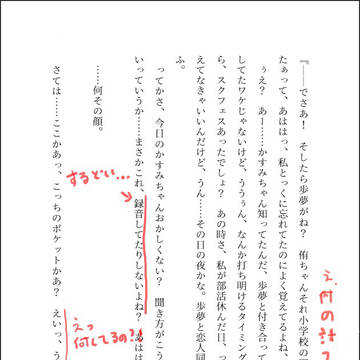 『――でさあ!　そしたら歩夢がね?　侑ちゃんそれ小学校の
たぁって、あははっ、私とっくに忘れてたのによく覚えてるよね
ぅえ?　あー……かすみちゃん知ってたんだ、歩夢と付き合って
してたワケじゃないけど、ううぅん、なんか打ち明けるタイミング
ら、スクフェスあったでしょ?　あの時さ、私が部活休んだ日っ
えてなきゃいいんだけど、うん……その日の夜かな。歩夢と恋人同
ふ。
ってかさ、今日のかすみちゃんおかしくない?　聞き方がこう
いっていうか……まさかこれ、録音してたりしないよね?　あはは
するどい…
……何その顔。
さては……ここかあっ、こっちのポケットかあ?　えいっ、う
えっ
何してるの?!